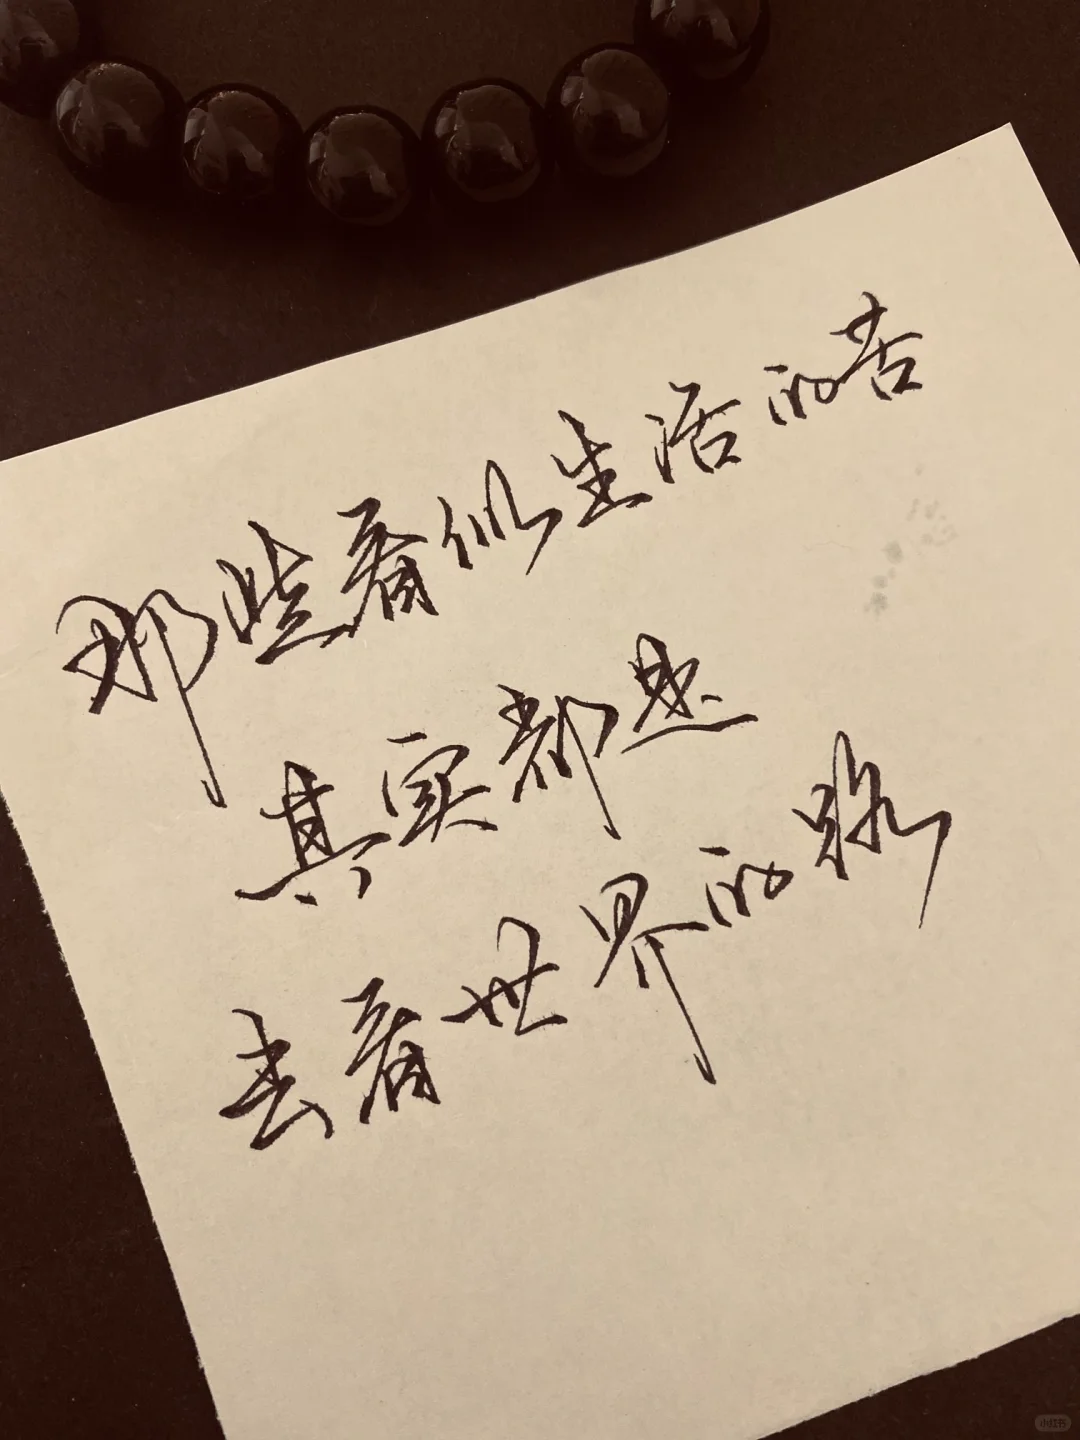 那些看似生活的苦
其实都是
去看世界的路
小红书